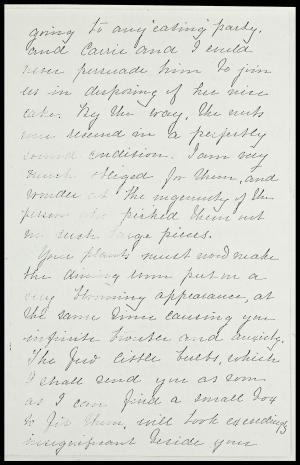 going to any "eating" party,
and Carrie and I could
never persuade him to join
us in disposing of her nice
cake. By the way, the nuts
were received in a perfectly
sound condition. I am very
much obliged for them, and
wonder at the ingenuity of the
person who picked them out
in such large pieces.
Your plants must now make
the dining room put on a
very blooming appearance, at
the same time causing you
infinite trouble and anxiety.
The few little bulbs, which
I shall send you as soon
as I can find a small box
to fix them, will look exceedingly
insignificant beside your